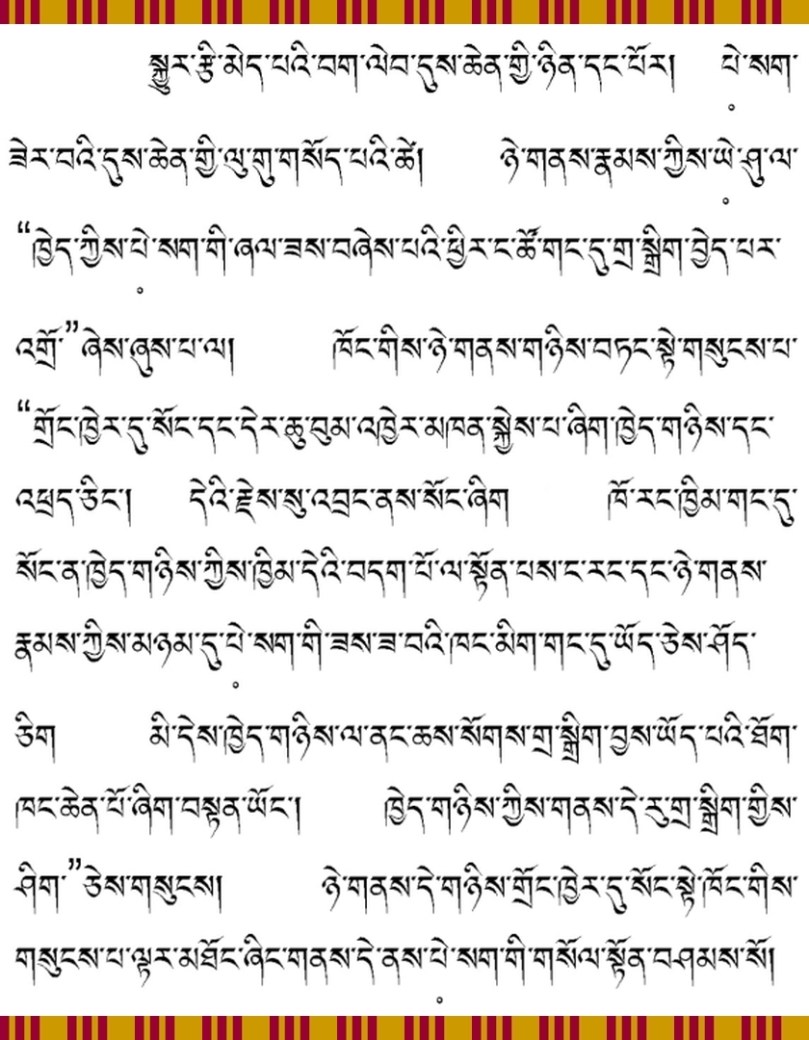 སྐྱུར་རྩི་མེད་པའི་བག་ལེབ་དུས་ཆེན་གྱི་ཉིན་དང་པོར། པེ་༷སག་
ཟེར་བའི་དུས་ཆེན་གྱི་ལུ་གུ་གསོད་པའི་ཚེ། ཉེ་གནས་རྣམས་ཀྱིས་ཡེ་ཤུ་ལ་
“ཁྱེད་ཀྱིས་པེ་སག་གི་ཞལ་ཟས་བཞེས་པའི་ཕྱིར་ང་ཚོ་གང་དུ་གྲ་སྒྲིག་བྱེད་པར་
འགྲོ་”ཞེས་ཞུས་པ་ལ། ཁོང་གིས་ཉེ་གནས་གཉིས་བཏང་སྟེ་གསུངས་པ་
“གྲོང་ཁྱེར་དུ་སོང་དང་དེར་ཆུ་བུམ་འཁྱེར་མཁན་སྐྱེས་པ་ཞིག་ཁྱེད་གཉིས་དང་
འཕྲད་ཅིང་། དེའི་རྗེས་སུ་འབྲང་ནས་སོང་ཞིག ཁོ་རང་ཁྱིམ་གང་དུ་
སོང་ན་ཁྱེད་གཉིས་ཀྱིས་ཁྱིམ་དེའི་བདག་པོ་ལ་སྟོན་པས་ང་རང་དང་ཉེ་གནས་
རྣམས་ཀྱིས་མཉམ་དུ་པེ་སག་གི་ཟས་ཟ་བའི་ཁང་མིག་གང་དུ་ཡོད་ཅེས་ཤོད་
ཅིག མི་དེས་ཁྱེད་གཉིས་ལ་ནང་ཆས་སོགས་གྲ་སྒྲིག་བྱས་ཡོད་པའི་ཐོག་
ཁང་ཆེན་པོ་ཞིག་བསྟན་ཡོང་། ཁྱེད་གཉིས་ཀྱིས་གནས་དེ་རུ་གྲ་སྒྲིག་གྱིས་
ཤིག་”ཅེས་གསུངས། ཉེ་གནས་དེ་གཉིས་གྲོང་ཁྱེར་དུ་སོང་སྟེ་ཁོང་གིས་
གསུངས་པ་ལྟར་མཐོང་ཞིང་གནས་དེ་ནས་པེ་སག་གི་གསོལ་སྟོན་བཤམས་སོ།